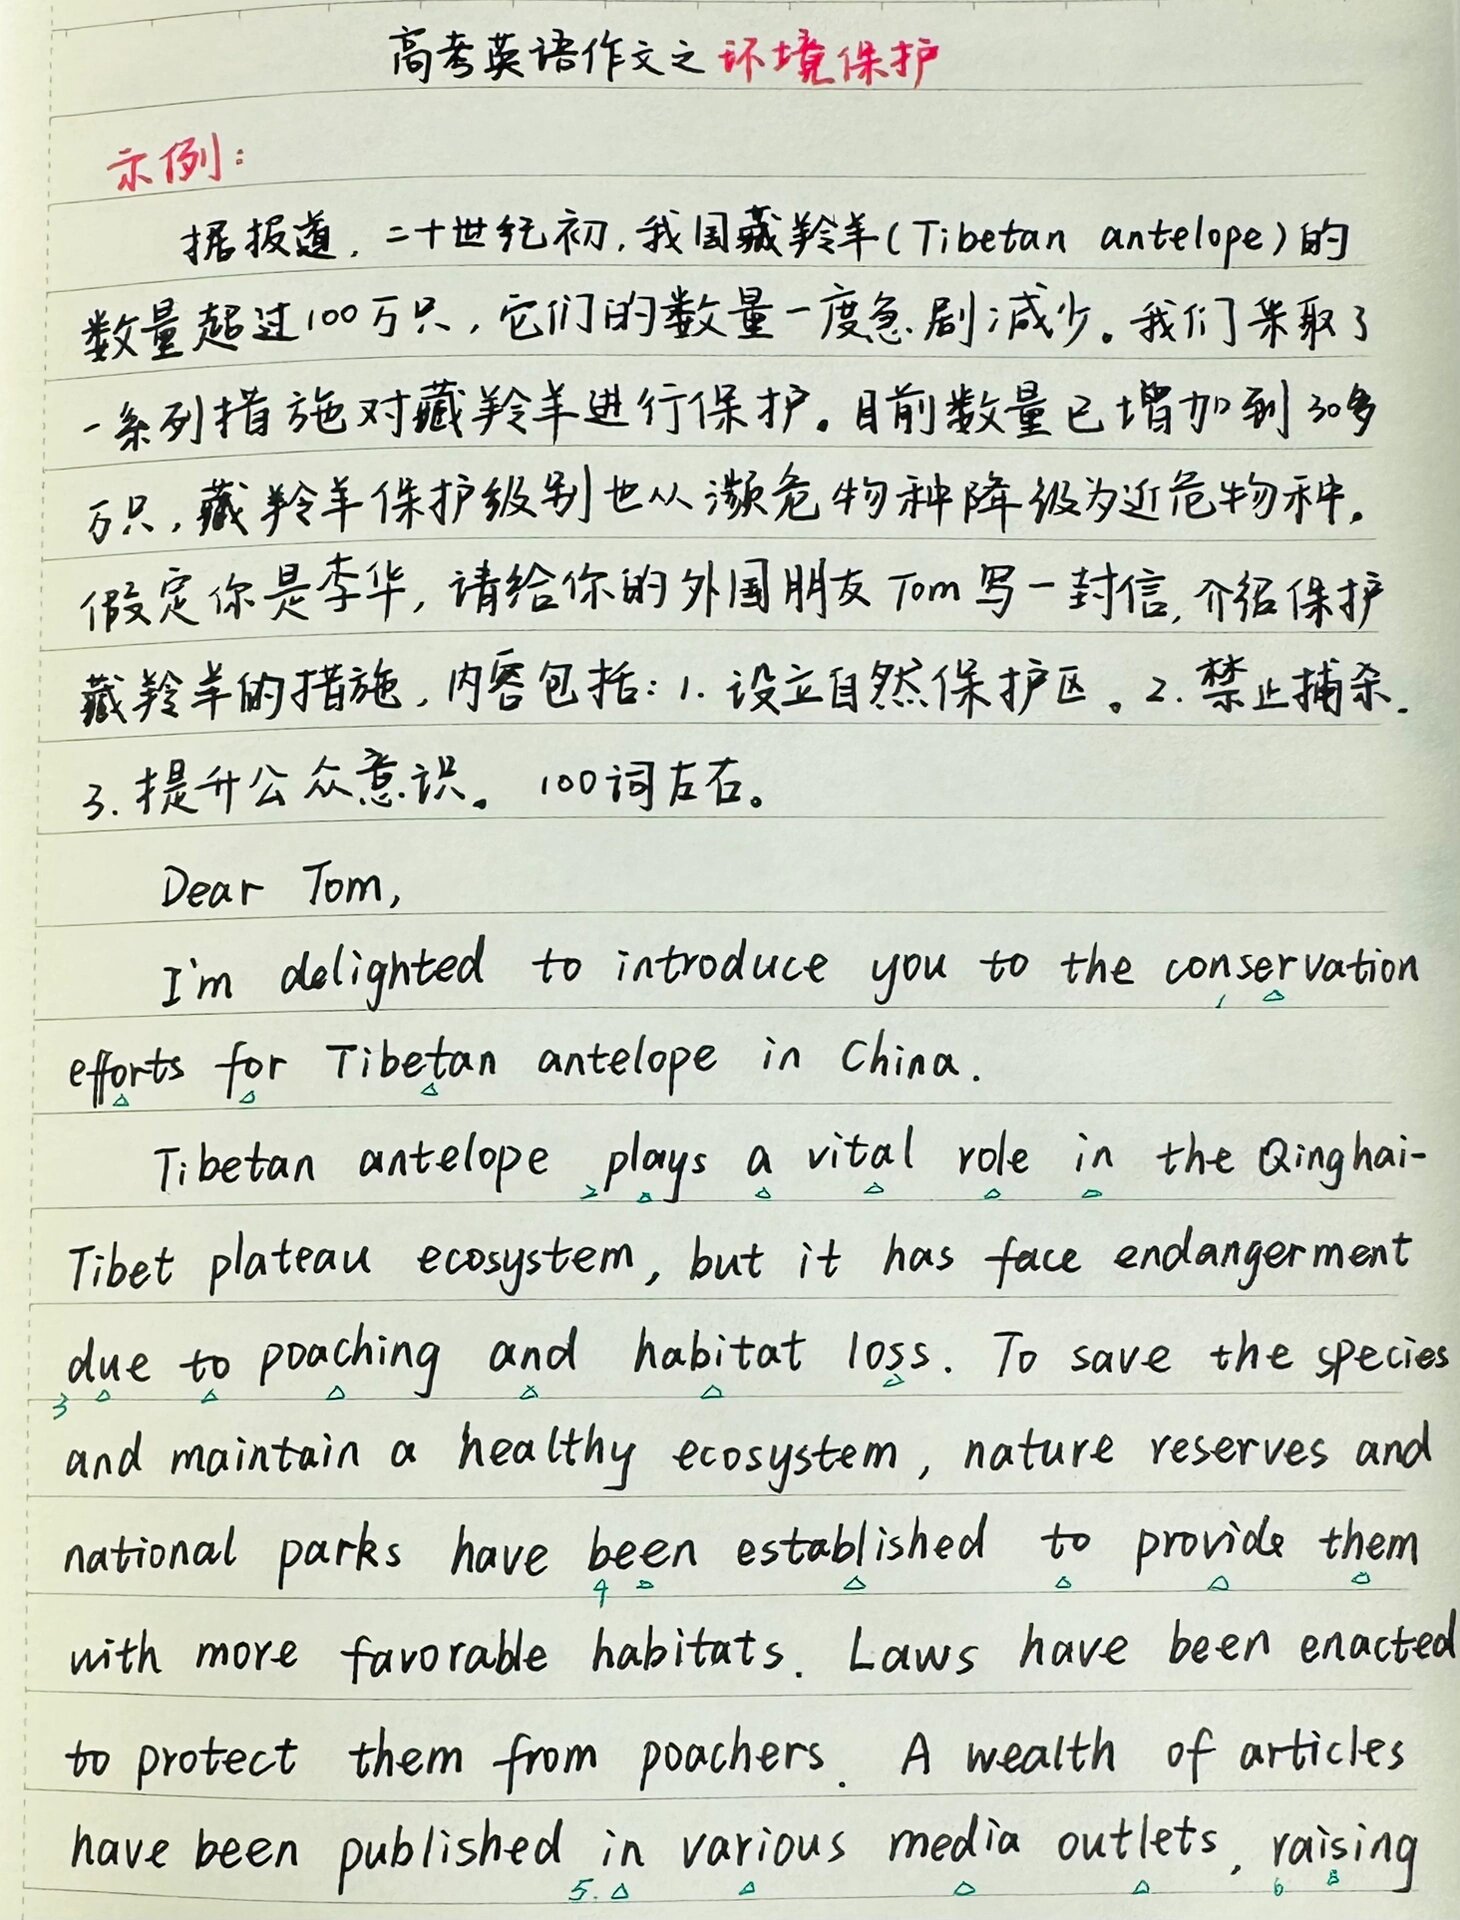 高考英语作文之环境保护
示例:
据报道,二十世纪初,我国藏羚羊(Tibetan antelope)的
数量超过100万只,它们的数量一度急剧减少。我们采取了
一系列措施对藏羚羊进行保护。目前数量已增加到30多
万只,藏羚羊保护级别也从濒危物种降级为近危物种。
假定你是李华,请给你的外国朋友Tom写一封信,介绍保护
藏羚羊的措施,内容包括:1.设立自然保护区。2.禁止捕杀.
3.提升公众意识。 100词左右。
Dear Tom,
I'm delighted to introduce you to the conservation
1
efforts for Tibetan antelope in China.
Tibetan antelope plays a vital role in the Qinghai-
2
Tibet plateau ecosystem, but it has face endangerment
due to poaching and habitat loss. To save the species
3
and maintain a healthy ecosystem, nature reserves and
national parks have been established to provide them
4
with more favorable habitats. Laws have been enacted
to protect them from poachers. A wealth of articles
have been published in various media outlets, raising
5. 6